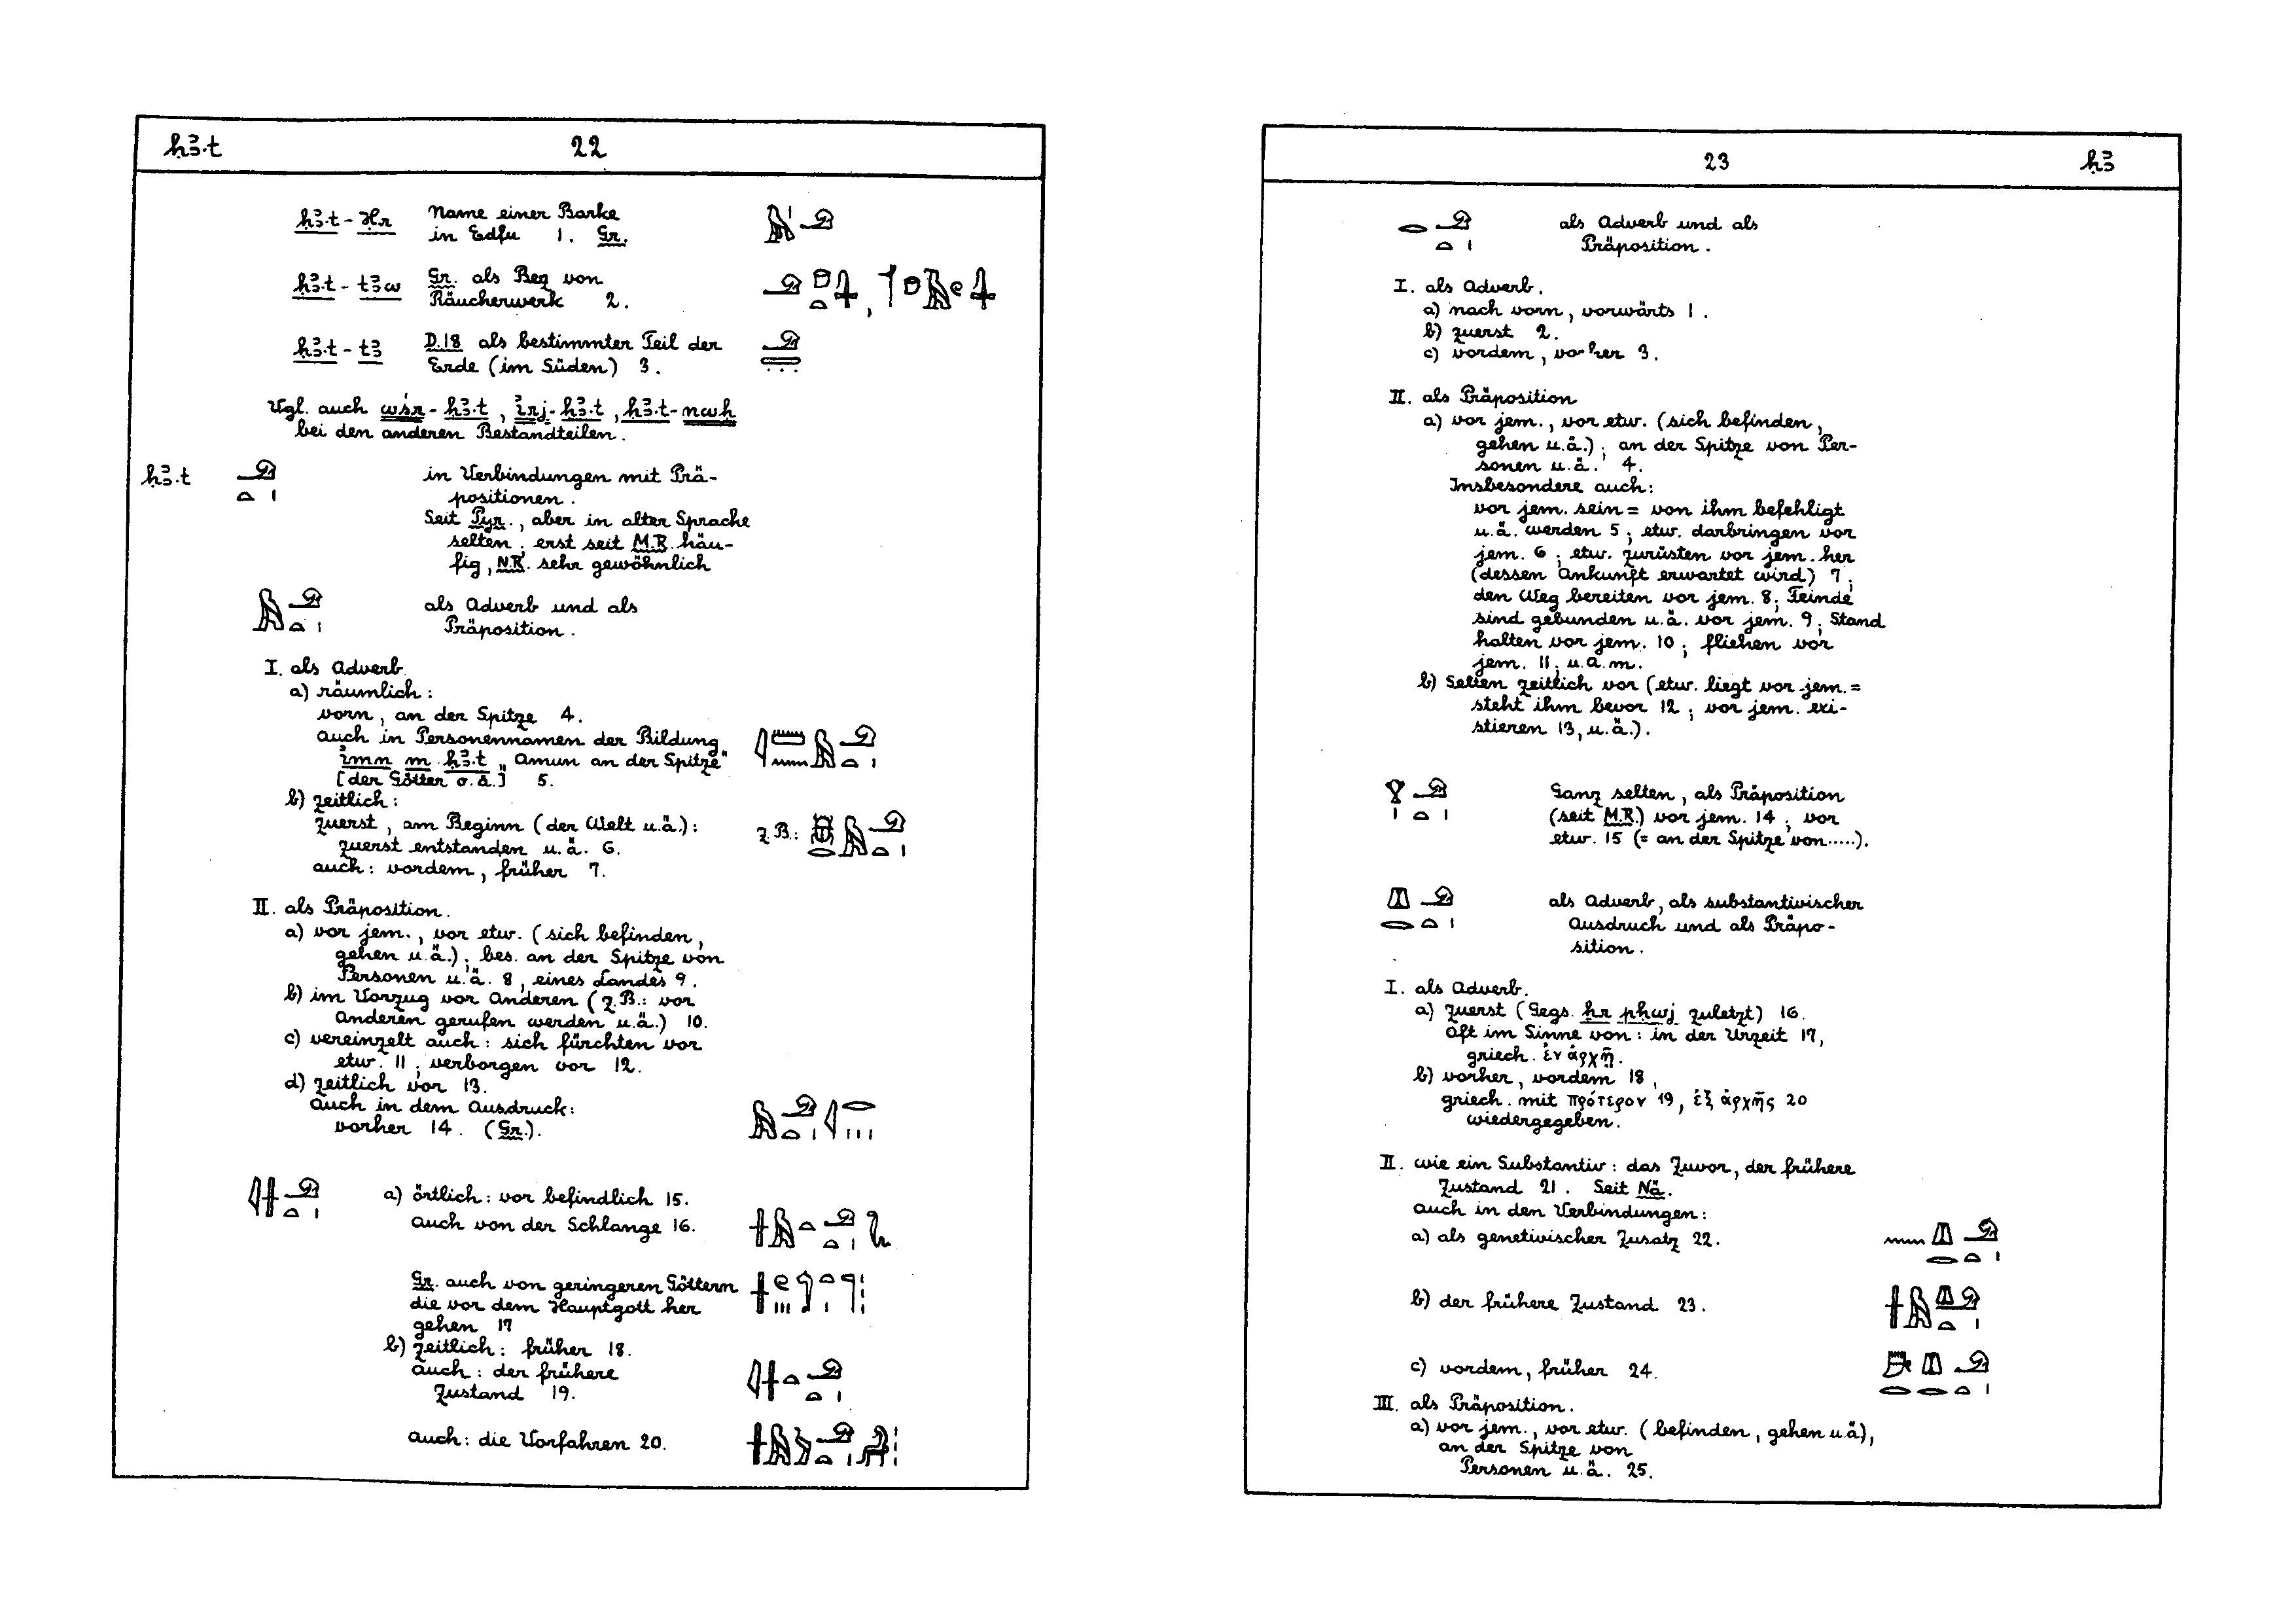 ḥꜣ·t 22
ḥꜣ·t - Ḥr Name einer Barke
in Edfu 1. Gr.
ḥꜣ·t - ṯꜣw Gr. als Bez von
Räucherwerk 2.
ḥꜣ·t - tꜣ D.18 als bestimmter Teil der
Erde (im Süden) 3.
Vgl. auch wśr - ḥꜣ·t, i҆rj - ḥꜣ·t, ḥꜣ·t - nwḥ
bei den anderen Bestandteilen.
ḥꜣ·t in Verbindungen mit Prä-
positionen.
Seit Pyr., aber in alter Sprache
selten; erst seit M.R. häu-
fig, N.R. sehr gewöhnlich
als Adverb und als
Präposition.
I. als Adverb
a) räumlich:
vorn, an der Spitze 4.
auch in Personennamen der Bildung
i҆mn m ḥꜣ·t „Amun an der Spitze"
[der Götter o.ä.] 5.
b) zeitlich:
zuerst, am Beginn (der Welt u.ä.): z.B.:
zuerst entstanden u.ä. 6.
auch: vordem, früher 7.
II. als Präposition.
a) vor jem., vor etw. (sich befinden,
gehen u.ä.); bes. an der Spitze von
Personen u.ä. 8, eines Landes 9.
b) im Vorzug vor Anderen (z.B.: vor
Anderen gerufen werden u.ä.) 10.
c) vereinzelt auch: sich fürchten vor
etw. 11; verborgen vor 12.
d) zeitlich vor 13.
auch in dem Ausdruck:
vorher 14. (Gr.).
a) örtlich: vor befindlich 15.
auch von der Schlange 16.
Gr. auch von geringeren Göttern
die vor dem Hauptgott her
gehen 17
b) zeitlich: früher 18.
auch: der frühere
Zustand 19.
auch: die Vorfahren 20.
23 ḥꜣ
als Adverb und als
Präposition.
I. als Adverb.
a) nach vorn, vorwärts 1.
b) zuerst 2.
c) vordem, vorher 3.
II. als Präposition
a) vor jem., vor etw. (sich befinden,
gehen u.ä.); an der Spitze von Per-
sonen u.ä. 4.
Insbesondere auch:
vor jem. sein = von ihm befehligt
u.ä. werden 5; etw. darbringen vor
jem. 6; etw. zurüsten vor jem. her
(dessen Ankunft erwartet wird) 7;
den Weg bereiten vor jem. 8; Feinde
sind gebunden u.ä. vor jem. 9; Stand
halten vor jem. 10; fliehen vor
jem. 11; u.a.m.
b) Selten zeitlich vor (etw. liegt vor jem. =
steht ihm bevor 12; vor jem. exi-
stieren 13, u.ä.).
Ganz selten, als Präposition
(seit M.R.) vor jem. 14; vor
etw. 15 (= an der Spitze von.....).
als Adverb, als substantivischer
Ausdruck und als Präpo-
sition.
I. als Adverb.
a) zuerst (Gegs. ḥr pḥwj zuletzt) 16.
oft im Sinne von: in der Urzeit 17,
griech. ἐν ἀρχῇ.
b) vorher, vordem 18,
griech. mit πρότερον 19, ἐξ ἀρχῆς 20
wiedergegeben.
II. wie ein Substantiv: das Zuvor, der frühere
Zustand 21. Seit Nä.
auch in den Verbindungen:
a) als genetivischer Zusatz 22.
b) der frühere Zustand 23.
c) vordem, früher 24.
III. als Präposition.
a) vor jem., vor etw. (befinden, gehen u.ä),
an der Spitze von
Personen u.ä. 25.